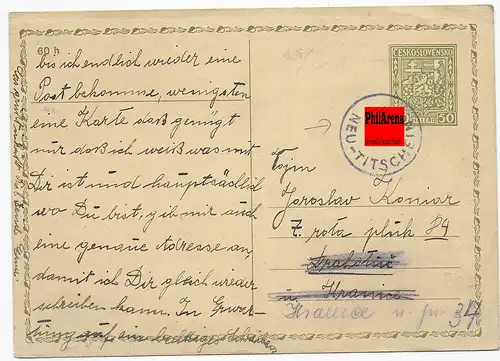 60 h
bis ich endlich wieder eine
Post bekomme, wenigsten
eine Karte daß genügt
nur daß ich weiß was mit
Dir ist und hauptsächlich
wo Du bist, gib mir auch
eine genaue Adresse an,
damit ich Dir gleich wieder
schreiben kann. In Erwar-
tung auf ein baldiges
ČESKOSLOVENSKO
50
NEU-TITSCHEIN
PhilArena
Vojm
Jaroslav Komar
7. rota pluk 34
Drahotuš
u Hranice
Hranice u pp. 34